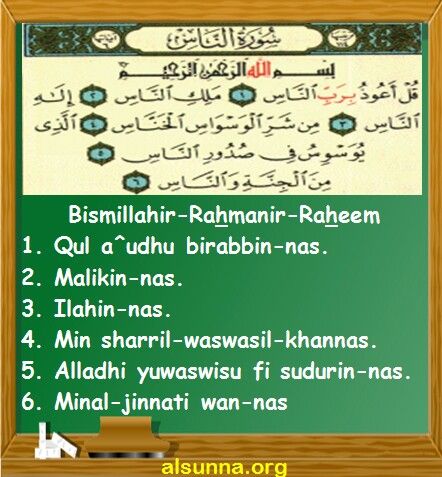 سُورَةُ النَّاسِ
بِسْمِ اللَّهِ الرَّحْمَٰنِ الرَّحِيمِ
قُلْ أَعُوذُ بِرَبِّ النَّاسِ ١ مَلِكِ النَّاسِ ٢ إِلَٰهِ
النَّاسِ ٣ مِن شَرِّ الْوَسْوَاسِ الْخَنَّاسِ ٤ الَّذِي
يُوَسْوِسُ فِي صُدُورِ النَّاسِ ٥
مِنَ الْجِنَّةِ وَالنَّاسِ ٦
Bismillahir-Rahmanir-Raheem
1. Qul a^udhu birabbin-nas.
2. Malikin-nas.
3. Ilahin-nas.
4. Min sharril-waswasil-khannas.
5. Alladhi yuwaswisu fi sudurin-nas.
6. Minal-jinnati wan-nas
alsunna.org